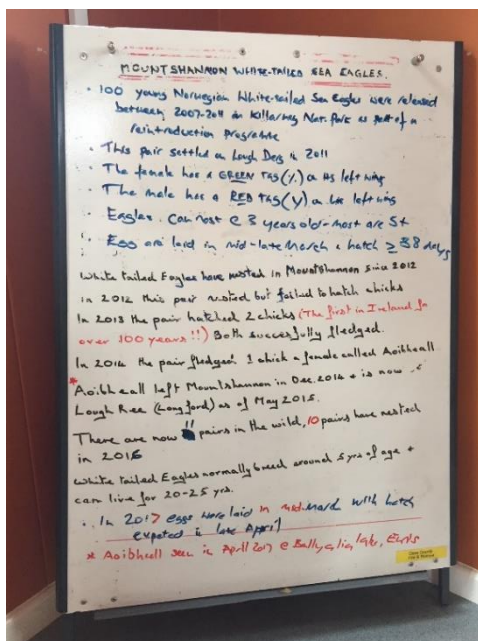 MOUNTSHANNON WHITE-TAILED SEA EAGLES.
· 100 young Norwegian White-tailed Sea Eagles were released
between 2007-2011 in Killarney Nat. Park as part of a
reintroduction programme
· This pair settled on Lough Derg in 2011
· The female has a GREEN TAG on its left wing
· The male has a RED TAG (Y) on left wing
· Eagles can nest @ 3 years old - most are 5+
· Egg are laid in mid-late March & hatch ≥ 38 days
White tailed Eagles have nested in Mountshannon since 2012
in 2012 this pair nested but failed to hatch chicks
In 2013 the pair hatched 2 chicks (The first in Ireland for
over 100 years!!) Both successfully fledged.
In 2014 the pair fledged 1 chick a female called Aoibheall
* Aoibheall left Mountshannon in Dec. 2014 & is now
Lough Ree (Longford) as of May 2015.
There are now pairs in the wild, 10 pairs have nested
in 2015
White tailed Eagles normally breed around 5 yrs of age +
can live for 20-25 yrs.
· In 2017 eggs were laid in mid-March with hatch
expected in late April
* Aoibheall seen in April 2017 @ Ballyalia lake, Ennis